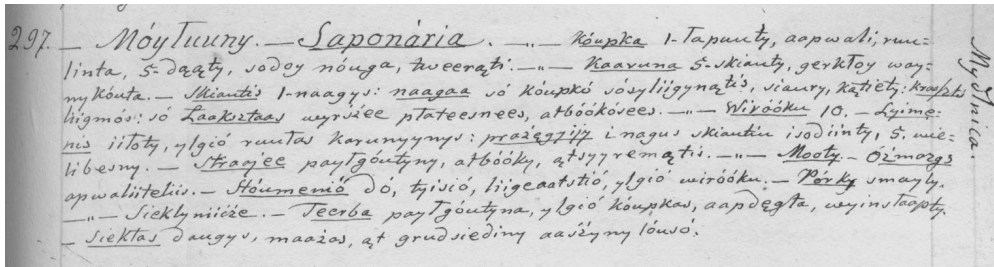 297. — Móyłuuny. — Saponária. —„— Kóupka 1-łapuuty, aapwali, ruu-
linta, 5-dąąty, sodoy nóuga, tweerąti. —„— Kaaruna 5-skiauty, gerkłoy way-
nykóuta. — Skiautis 1-naagys: naagaa só kóupkó sósyliigynątis, siaury, kątiety: kraąsztis
liigmós: só Laaksztaas wyrśzee płateesnees, atbóókósees. —„— Wiróóku 10. — Lyimę-
nis iilóty, ylgió ruułas karunyynys: prażęgyjy i nagus skiautiu isodiinty, 5. wie-
libesny. — Straajee paylgóutyny, atbóóky, ątsyyremątis. —„— Mooty. — Óżmozgs
apwaliiteliis. — Stóumenió dó, tyisió, liigeaatstió, ylgió wiróóku. — Pórky smayły.
—„— Sieklyniićże. — Teerba paylgóutyna, ylgió kóupkas, aapdęgta, wyinstaapty.
— Siekłas daugys, maażas, ąt grudsiediny aaśzyny lóusó.
Mydlnica.